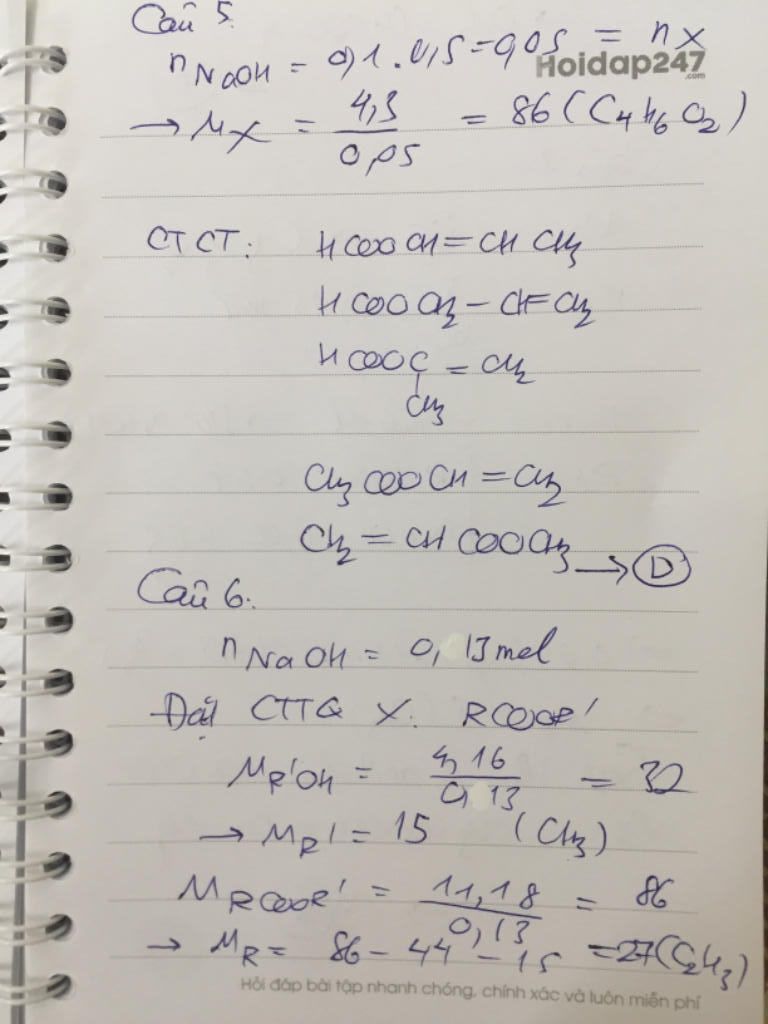 Câu 5.
nNaOH = 0,1.0,5=0,05 = nX
Hoidap247
.com
→ MX = 4,3/0,05 = 86 (C4H6O2)
CTCT: HCOOCH=CHCH3
HCOOCH2-CH=CH2
HCOOC=CH2
CH3
CH3COOCH=CH2
CH2=CHCOOCH3 → D
Câu 6.
nNaOH = 0,13mol
Đặt CTTQ X: RCOOR'
MR'OH = 4,16/0,13 = 32
→ MR' = 15 (CH3)
MRCOOR' = 11,18/0,13 = 86
→ MR = 86-44-15 =27(C2H3)
Hỏi đáp bài tập nhanh chóng, chính xác và luôn miễn phí